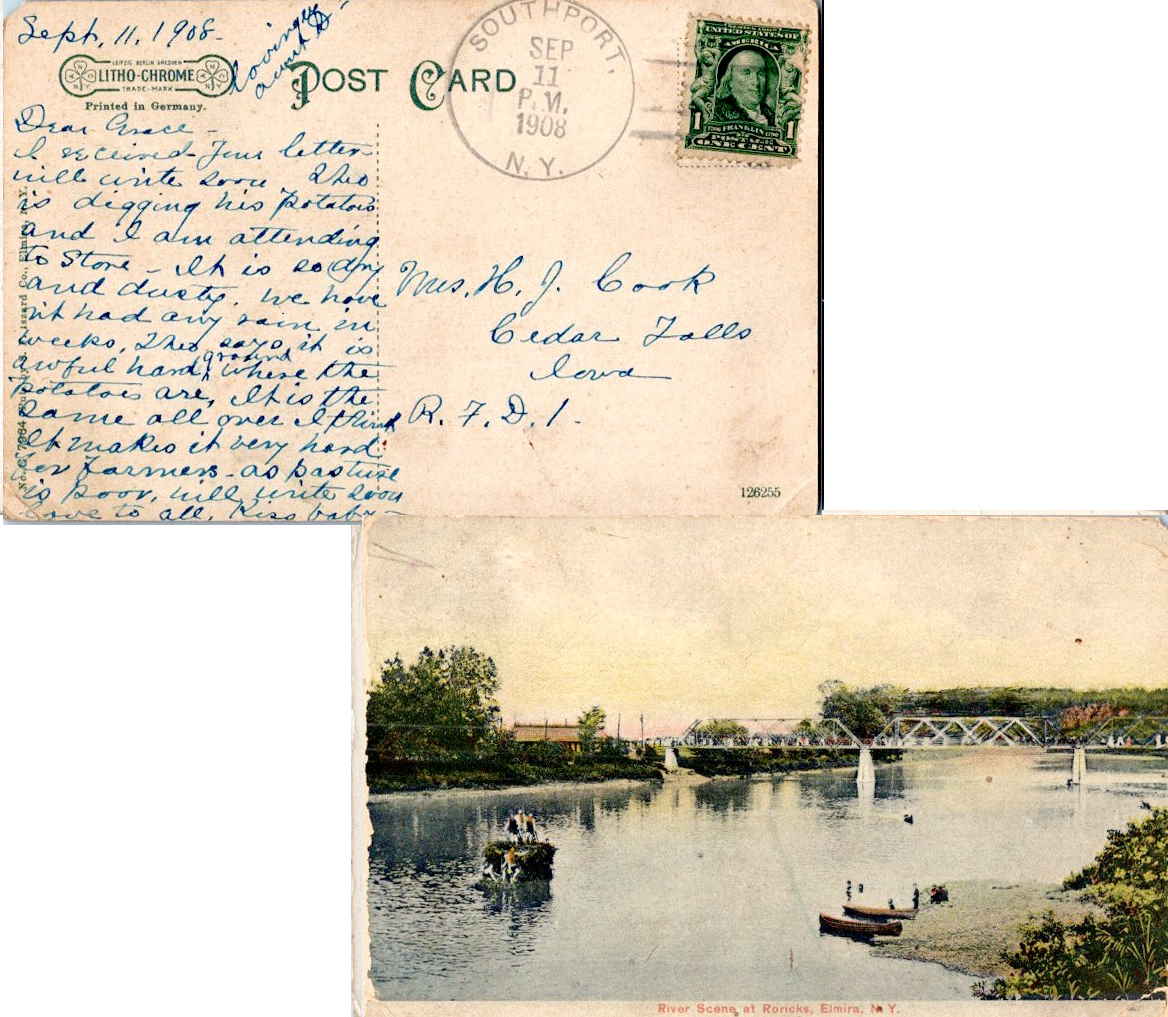 Sept. 11, 1908-
Lovingly
aunt D
LEIPZIG BERLIN DRESDEN
LITHO-CHROME
TRADE-MARK
N Y
N Y
Printed in Germany.
POST CARD
SOUTHPORT,
SEP
11
P.M.
1908
N.Y.
UNITED STATES OF
AMERICA
FRANKLIN
1 1
POSTAGE
ONE CENT
Dear Grace -
I received your letter
will write soon. Theo
is digging his potatoes
and I am attending
to Store - It is so dry
and dusty. We have
n't had any rain in
weeks, Theo says it is
awful hard ground where the
potatoes are, It is the
same all over I think
It makes it very hard
for Farmers - as pasture
is poor, will write soon
Love to all, Kiss baby-
Mrs. H. J. Cook
Cedar Falls
Iowa
R. F. D. 1-
No. G 7964
Co., Elmira, N.Y.
126255
River Scene at Roricks, Elmira, N. Y.